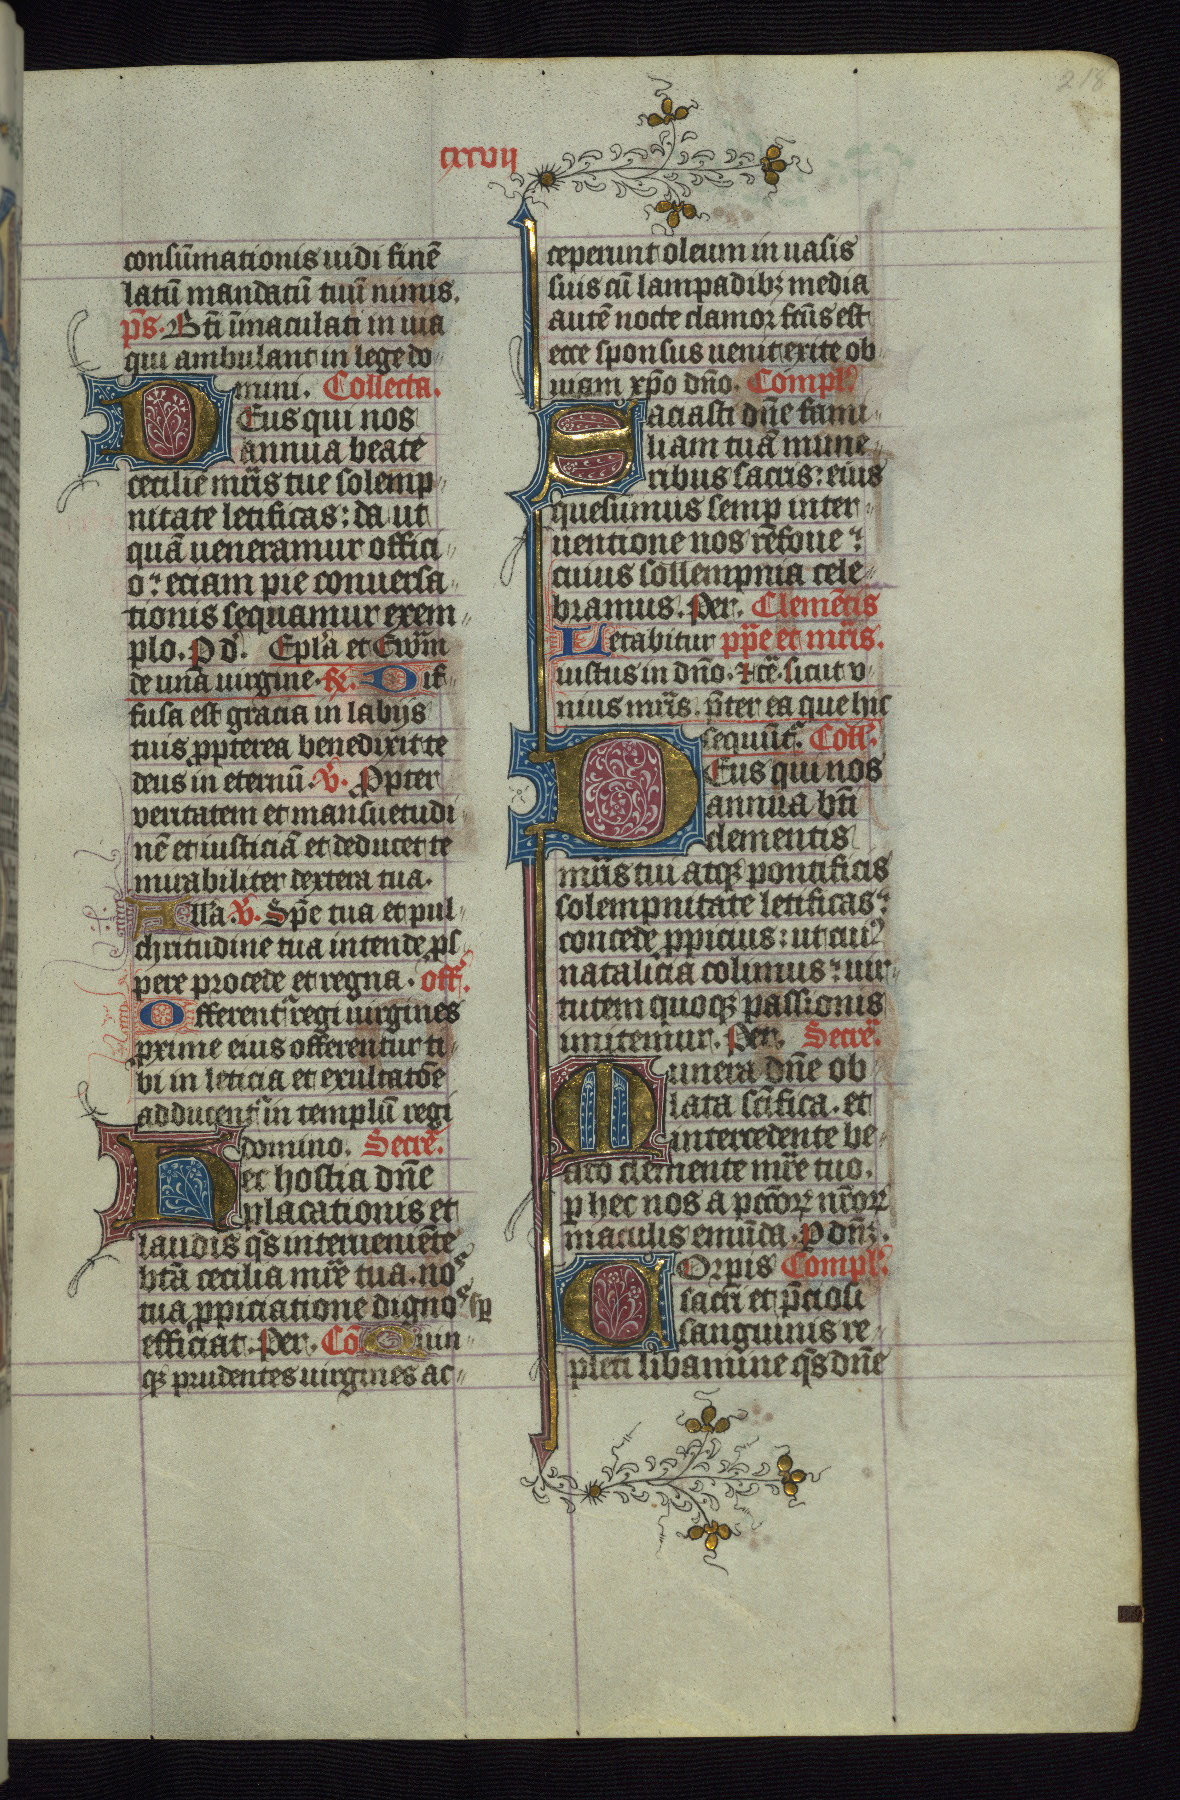 218
cxxvii
consūmationis uidi finē
latū mandatū tuū nimis.
ps. Bti īmaculati in uia
qui ambulant in lege do
mini. Collecta.
Deus qui nos
annua beate
cecilie mr̄is tue solemp
nitate letificas: da ut
quā ueneramur offici
o: etiam pie conuersa
tionis sequamur exem
plo. P d. Epla et Ewm
de una uirgine. R. Dif
fusa est gracia in labijs
tuis ꝓpterea benedixit te
deus in eternū. V. Propter
veritatem et mansuetudi
nē et iusticiā et deducet te
mirabiliter dextera tua.
Alla. V. Spe tua et pul
chritudine tua intende ꝓs
pere procede et regna. off.
Offerent regi uirgines
ꝓxime eius offerentur ti
bi in leticia et exultatōe
adducent in templū regi
domino. Secre.
Hec hostia dn̄e
placationis et
laudis q̄s interueniēte
btā cecilia mr̄e tua. nos
tua ꝓpiciatione dignos sp
efficiat. Per. Cō Quin
qꝫ prudentes uirgines ac
ceperunt oleum in uasis
suis cū lampadibꝫ media
autē nocte clamor fcūs est
ecce sponsus uenit exite ob
uiam xp̄o dn̄o. Compl.
Saciasti dn̄e fami
liam tuā mune
ribus sacris: eius
quesumus semp inter
uentione nos refoue:
cuius sollempnia cele
bramus. Per. Clemētis
Letabitur ppe et mr̄is.
iustus in dn̄o. 7 cē. sicut v
nius mr̄is. p̄ter ea que hic
sequūt. Coll.
Deus qui nos
annua bti
clementis
mr̄is tui atqꝫ pontificis
solempnitate letificas:
concede ꝓpicius: ut cui
natalicia colimus: uir
tutem quoqꝫ passionis
imitemur. Per. Secre.
Munera dn̄e ob
lata scīfica. et
intercedente be
ato clemente mr̄e tuo.
ꝑ hec nos a pctōꝝ nr̄oꝝ
maculis emūda. P dn̄ꝫ.
Corpis Compl.
sacri et p̄ciosi
sanguinis re
pleti libamine q̄s dn̄e